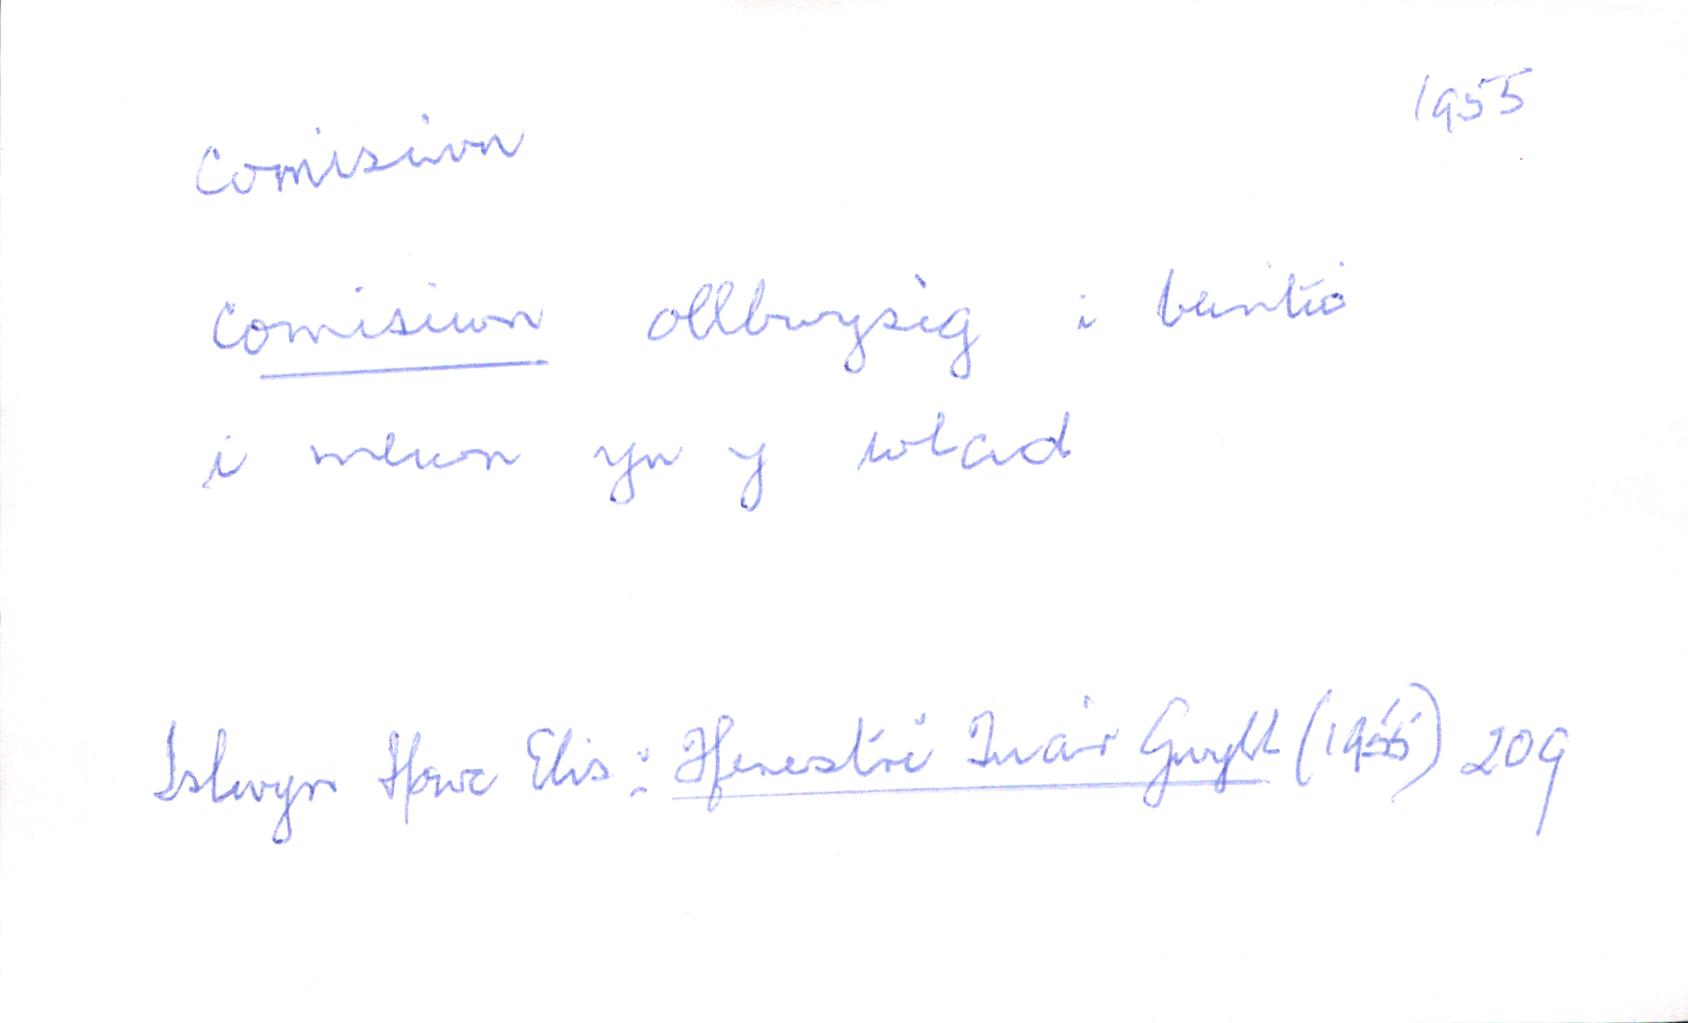 1955
comisiwn
comisiwn ollbwysig i beintio
i mewn yn y wlad
Islwyn Ffowc Elis: Ffenestri Tua'r Gwyll (1955) 209